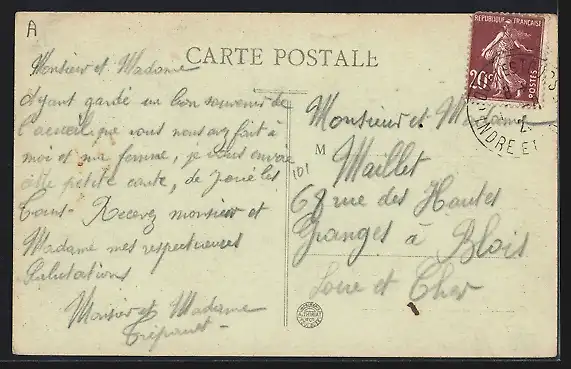 A
CARTE POSTALE
REPUBLIQUE FRANÇAISE
20c
POSTES
INDRE ET
Monsieur et Madame
Ayant gardé un bon souvenir de
l'acceuil que vous nous avez fait à
moi et ma femme, je vous envoie
cette petite carte, de Joué les
Tours. Recevez monsieur et
Madame mes respectueuses
Salutations
Monsier et Madame
Monsieur et Madame
M
Maillet
101
68 rue des Hautes
Granges à Blois
Loire et Cher